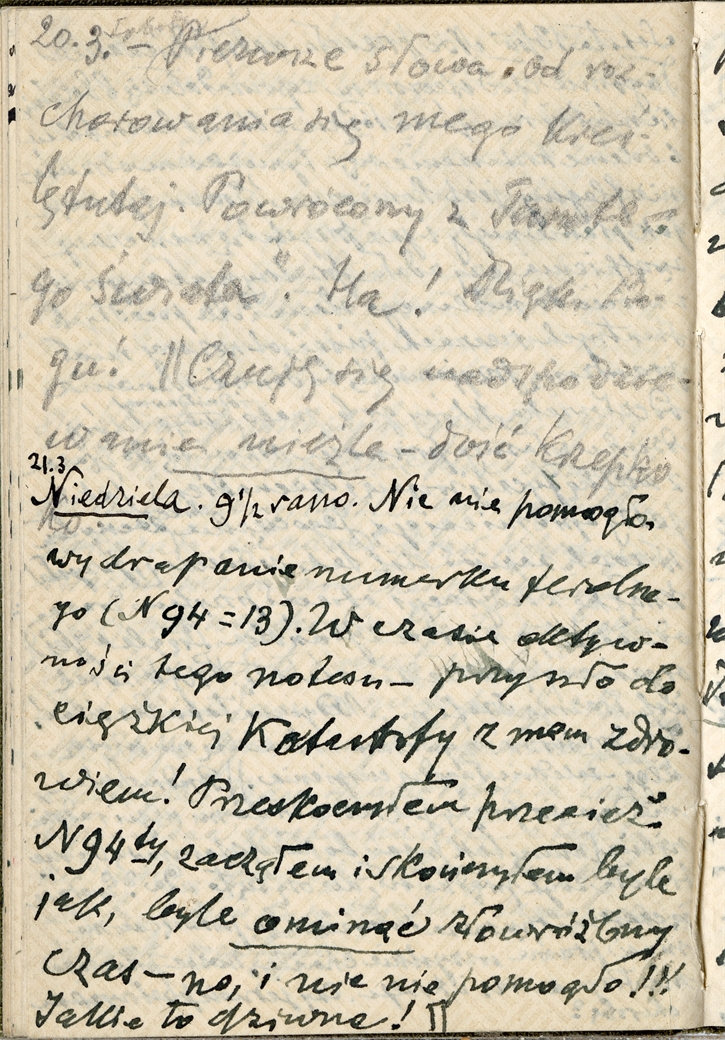 20.3. – Pierwsze słowa. Od roz-
chorowania się mego
tutaj. Powrócony z "Tamte-
go świata". Ha! Dzięki Bo-
gu! || Czuję się nadspodzie-
wanie nieźle – dość krzepko
21.3
Niedziela. 9 1/2 rano. Nic nie pomogło
wydrapanie numerku feralne-
go (N 94 = 13). W czasie aktyw-
ności tego notesu – przyszło do
ciężkiej Katastrofy z mem zdro-
wiem! Przeskoczyłem przecież
N 94ty, zacząłem i skończyłem byle
jak, byle ominąć złowróżbny
czas – no, i nic nie pomogło!!!
Jakie to dziwne!